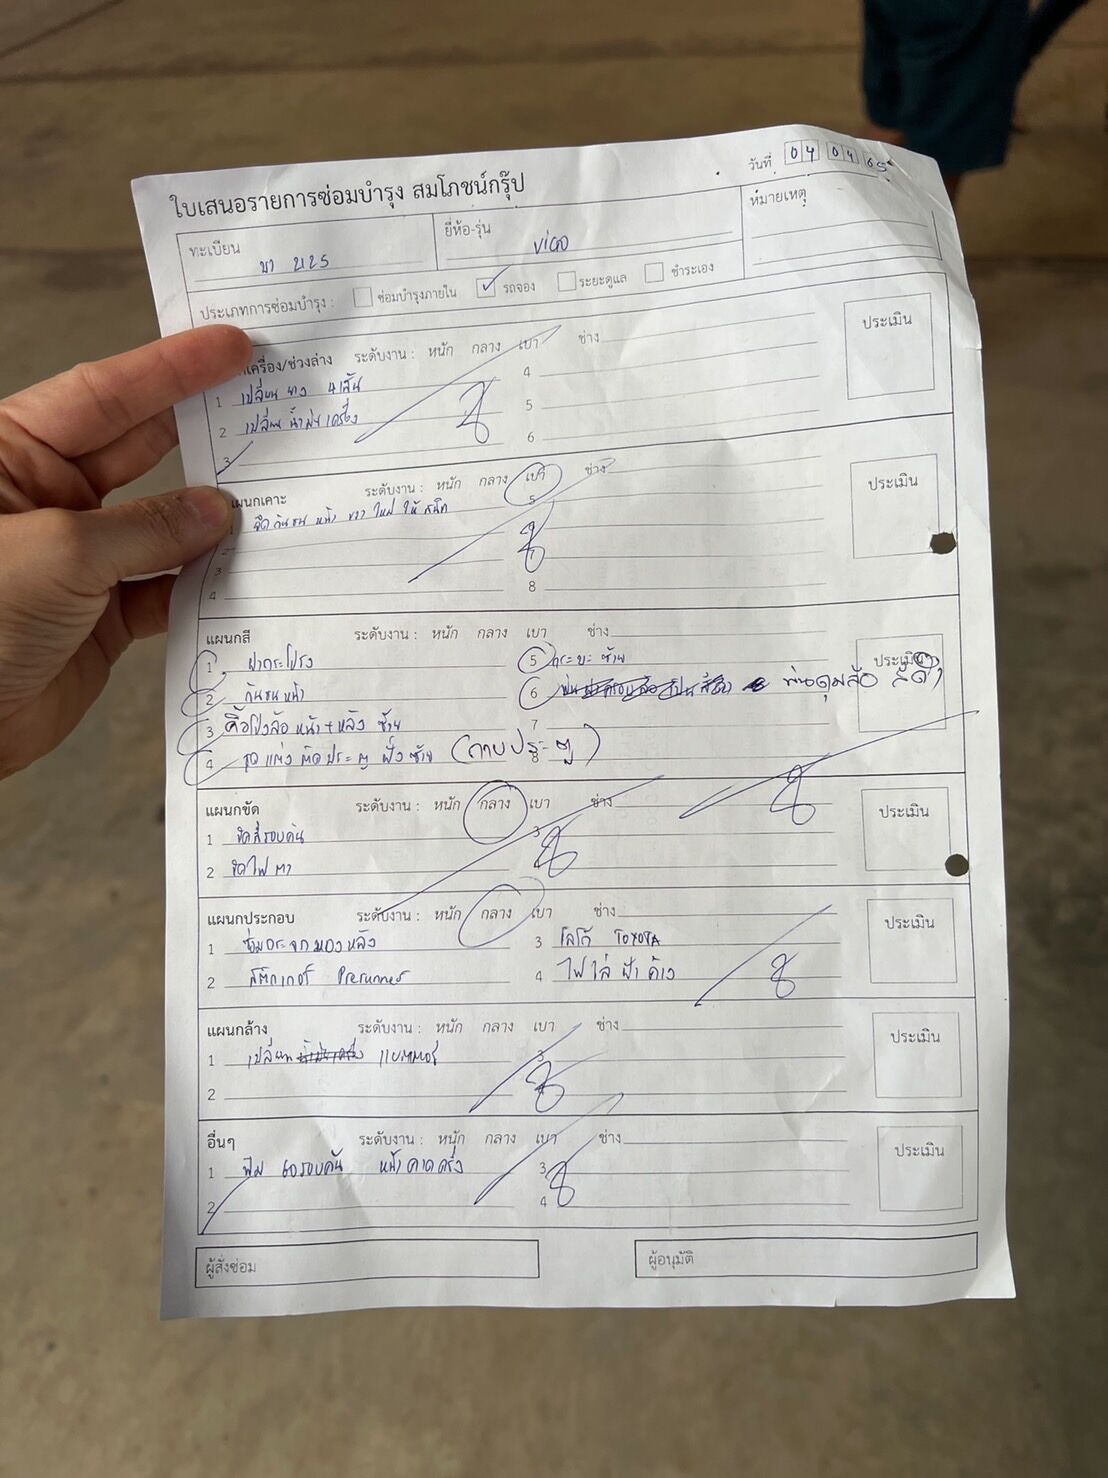 ใบเสนอรายการซ่อมบำรุง สมโภชน์กรุ๊ป
วันที่ 04 04 65
ทะเบียน 2125
ยี่ห้อ-รุ่น Vigo
หมายเหตุ
ประเภทการซ่อมบำรุง : ซ่อมบำรุงภายใน รถจอง ระยะดูแล ชำระเอง
เครื่อง/ช่วงล่าง ระดับงาน : หนัก กลาง เบา ช่าง ประเมิน
1 เปลี่ยน ยาง 4 เส้น
2 เปลี่ยน น้ำมันเครื่อง
3
4
5
6
แผนกเคาะ ระดับงาน : หนัก กลาง เบา ช่าง ประเมิน
1 ยึดกันชน หน้า ขวา ใหม่ ให้ สนิท
2
3
4
5
8
แผนกสี ระดับงาน : หนัก กลาง เบา ช่าง ประเมิน
1 ฝากระโปรง
2 กันชน หน้า
3 คิ้วโป่งล้อ หน้า + หลัง ซ้าย
4 ชุดแต่ง ติดประตู ฝั่งซ้าย (กาบประตู)
5 กระบะ ซ้าย
6 พ่นดุมล้อ สีดำ
7
8
แผนกขัด ระดับงาน : หนัก กลาง เบา ช่าง ประเมิน
1 ขัดสีรอบคัน
2 ขัดไฟตา
3
4
แผนกประกอบ ระดับงาน : หนัก กลาง เบา ช่าง ประเมิน
1 ซ่อมกระจกมองหลัง
2 สติกเกอร์ Prerunner
3 โลโก้ TOYOTA
4 ไฟใส่ ฝา ค้าง
แผนกล้าง ระดับงาน : หนัก กลาง เบา ช่าง ประเมิน
1 เปลี่ยน แบตเตอรี่
2
3
อื่นๆ ระดับงาน : หนัก กลาง เบา ช่าง ประเมิน
1 ฟิล์ม 60 รอบคัน หน้าคาดครึ่ง
2
3
4
ผู้สั่งซ่อม
ผู้อนุมัติ